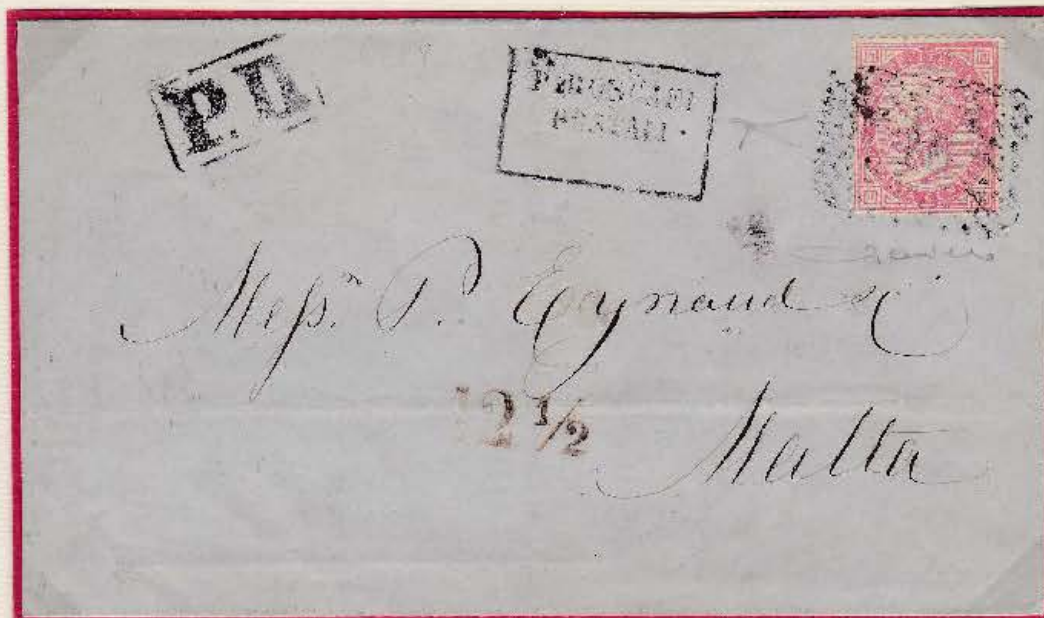 P.D.
PIROSCAFI
POSTALI
Messrs. P. Eynaud & C
12 1/2
Malta